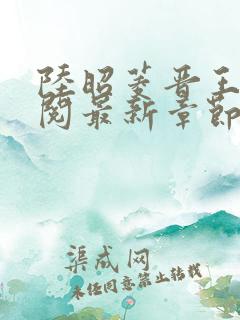 陸昭菱晋王
閱最新章節
渠成网
未经同意禁止转载